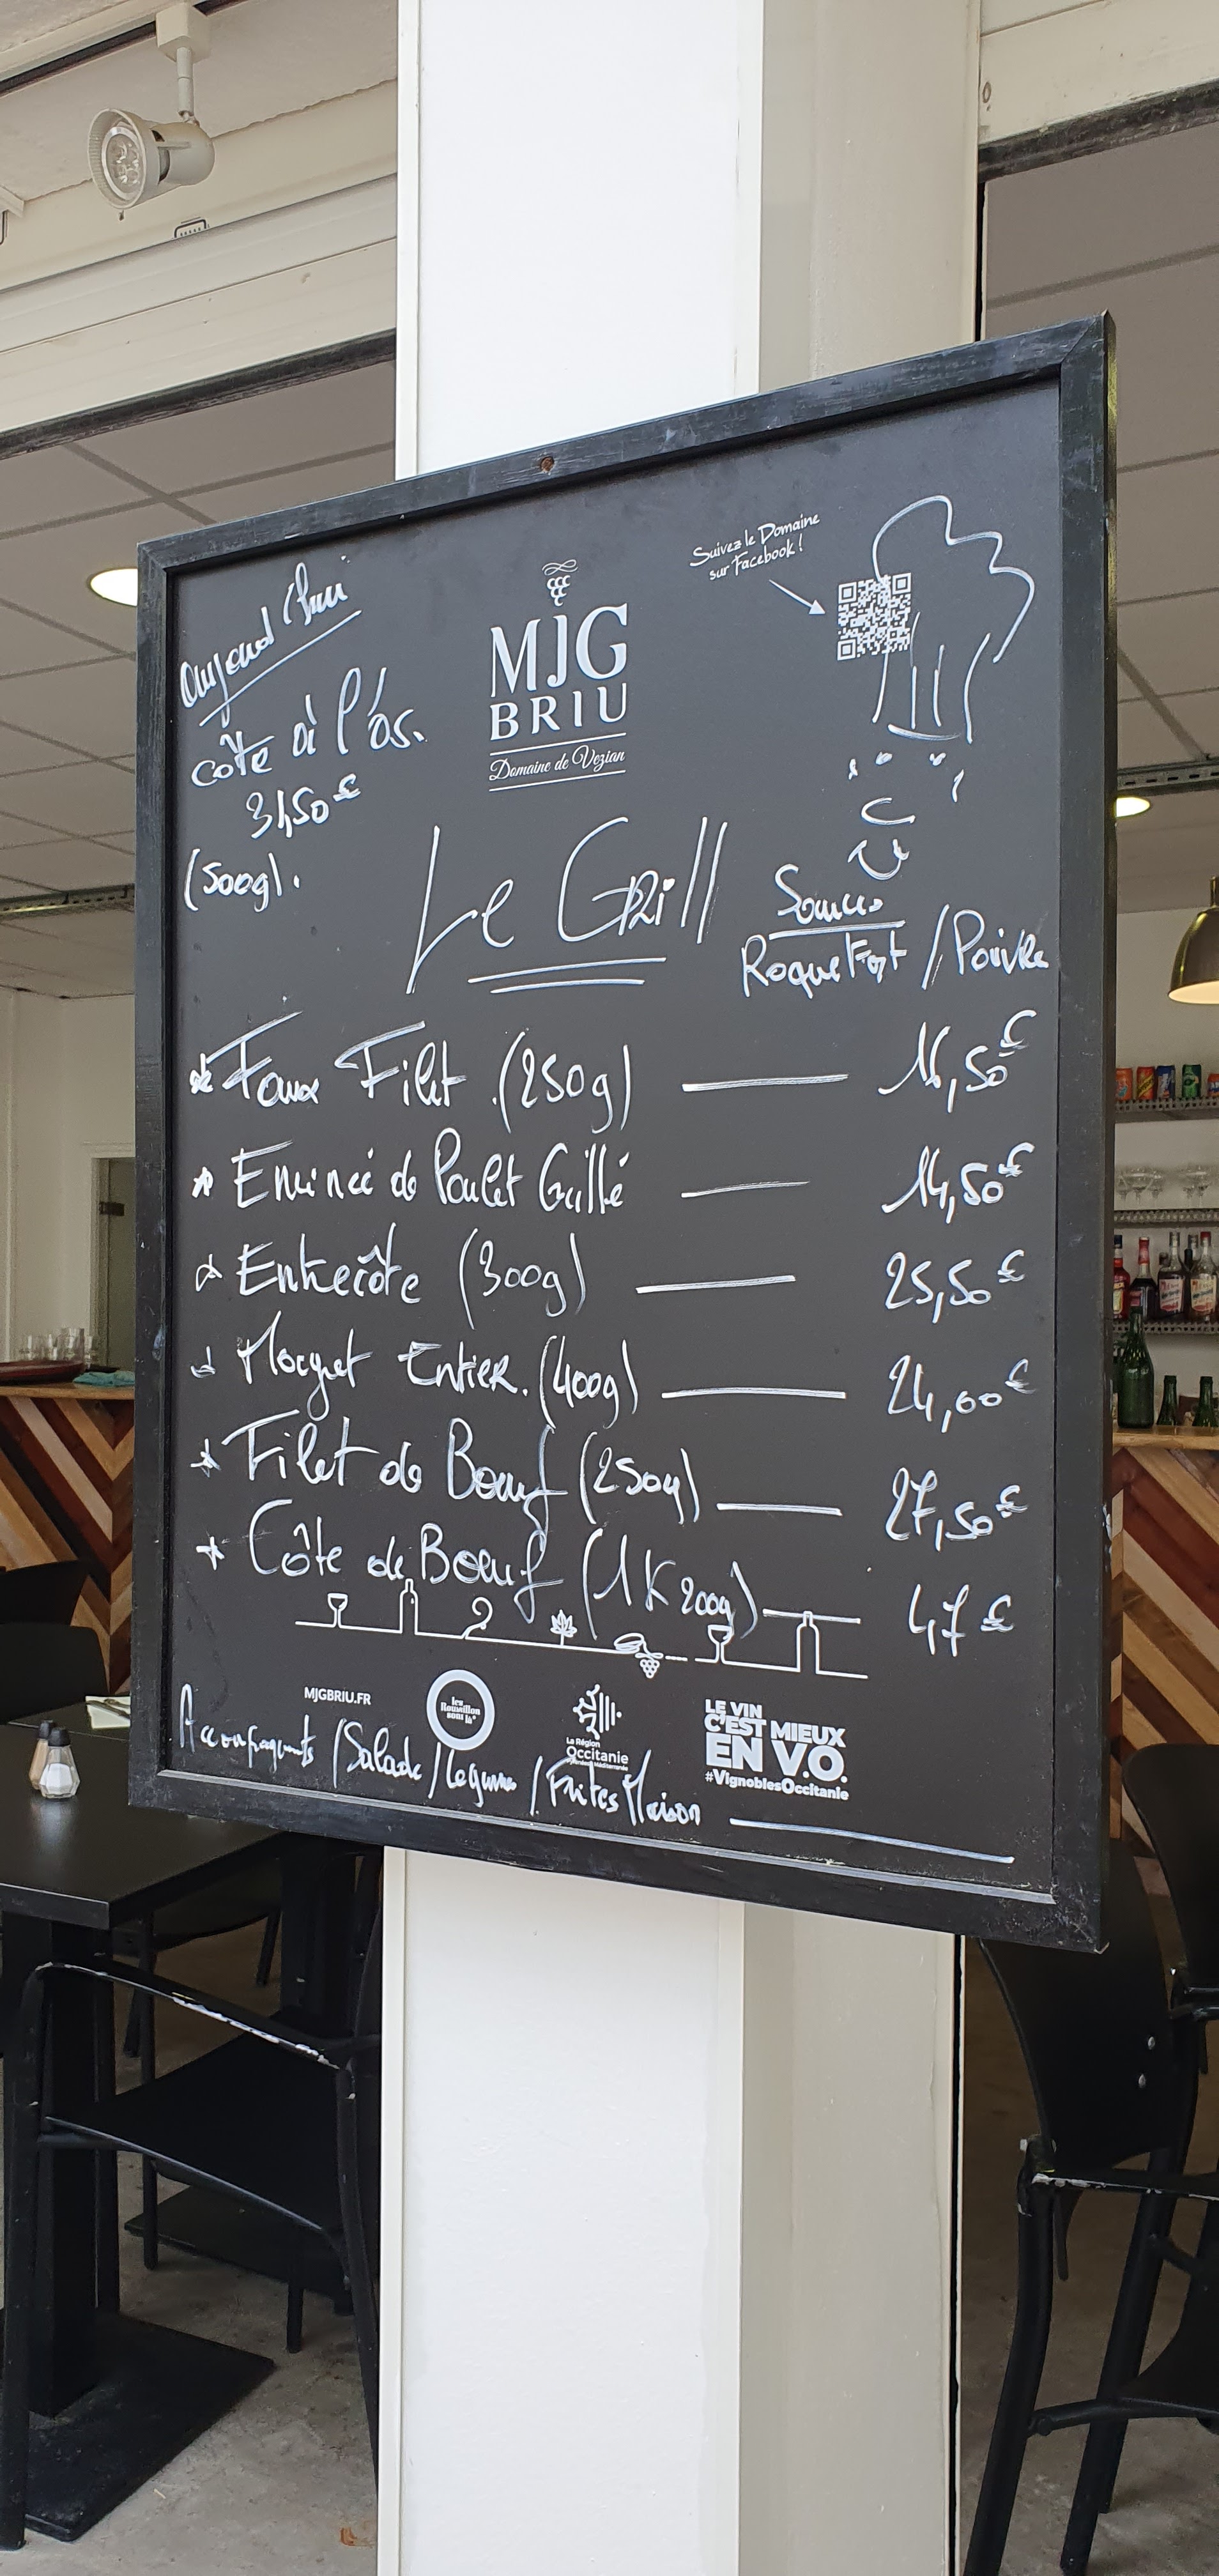 Aujourd'hui
côte à l'os.
31,50€
(500g).
MJG
BRIU
Domaine de Vezian
Suivez le Domaine
sur Facebook !
Le GRill
Sauces
RoqueFort / Poivre
Faux Filet (250g) 16,50€
Emincé de Poulet Grillé 14,50€
Entrecôte (300g) 25,50€
Magret Entier. (400g) 24,00€
Filet de Boeuf (250g) 27,50€
Côte de Boeuf (1K200g) 47€
MJGBRIU.FR
les
Roussillon
sont là
La Région
Occitanie
Pyrénées Méditerranée
LE VIN
C'EST MIEUX
EN V.O.
#VignoblesOccitanie
/Salade/Legumes/Frites Maison